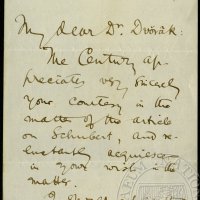 My dear Dr. Dvořák:
The Century ap-
preciates very sincerely
your courtesy in the
matter of the article
on Schubert, and re-
luctantly acquiesces
in your wish in the
matter.